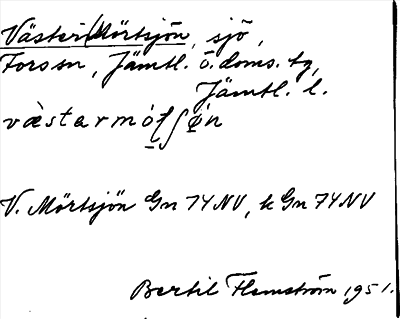 Väster(Mörtsjön, sjö,
Fors sn, Jämtl. ö. doms. tg,
Jämtl. l.
V. Mörtsjön Gn 74 NV, k Gn 74 NV
Bertil Flemström 1951.